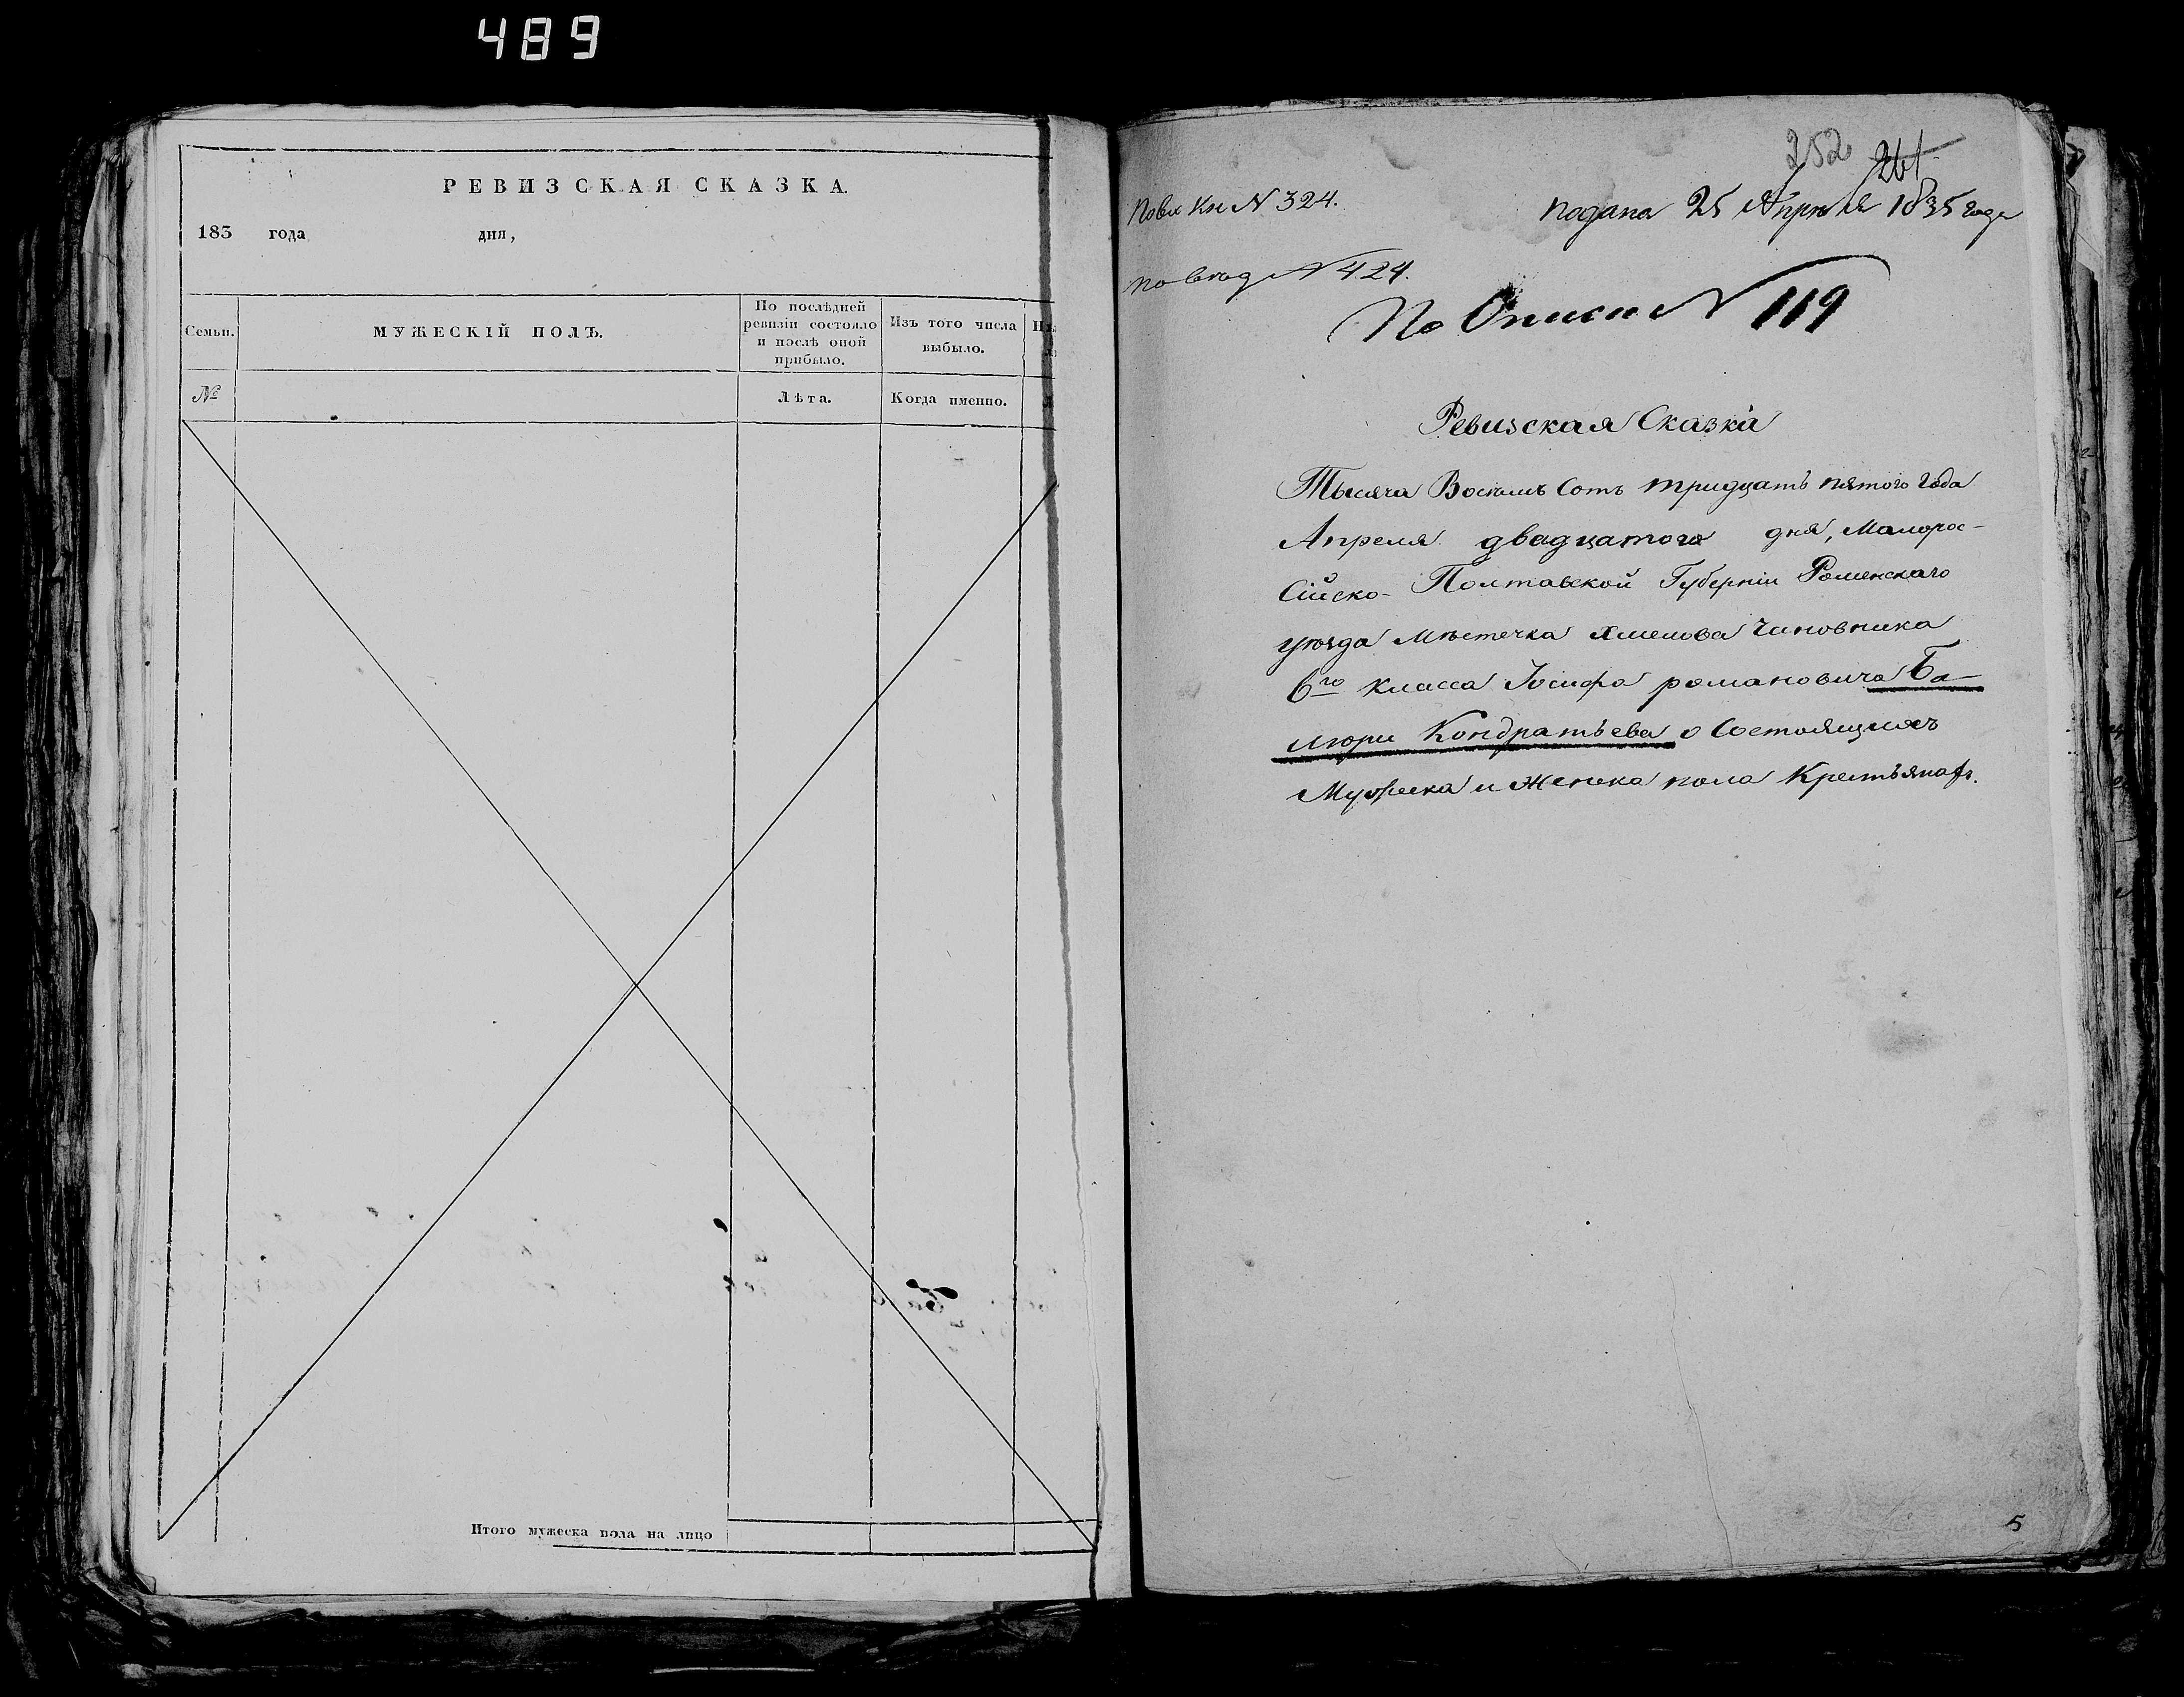 489
РЕВИЗСКАЯ СКАЗКА.
183 года дня,
Семьи.
МУЖЕСКІЙ ПОЛЪ.
По послѣдней
ревизіи состояло
и послѣ оной
прибыло.
Изъ того числа
выбыло.
№
Лѣта.
Когда именно.
Итого мужеска пола на лицо
252 261
По вх Кн N 324.
подана 25 Апрѣля 1835 года
по вход N 424.
По Описи N 119
Ревизская Сказка
Тысяча Восемь Сотъ тридцать пятого года
Апреля двадцатого дня, Малорос-
сійско- Полтавской Губерніи Роменскаго
уѣзда Мѣстечка Хмелова Чиновника
6го класса Іосифа романовича Ба-
люри Кондратьева о Состоящихъ
Мужеска и Женска пола Крестьянахъ.
5